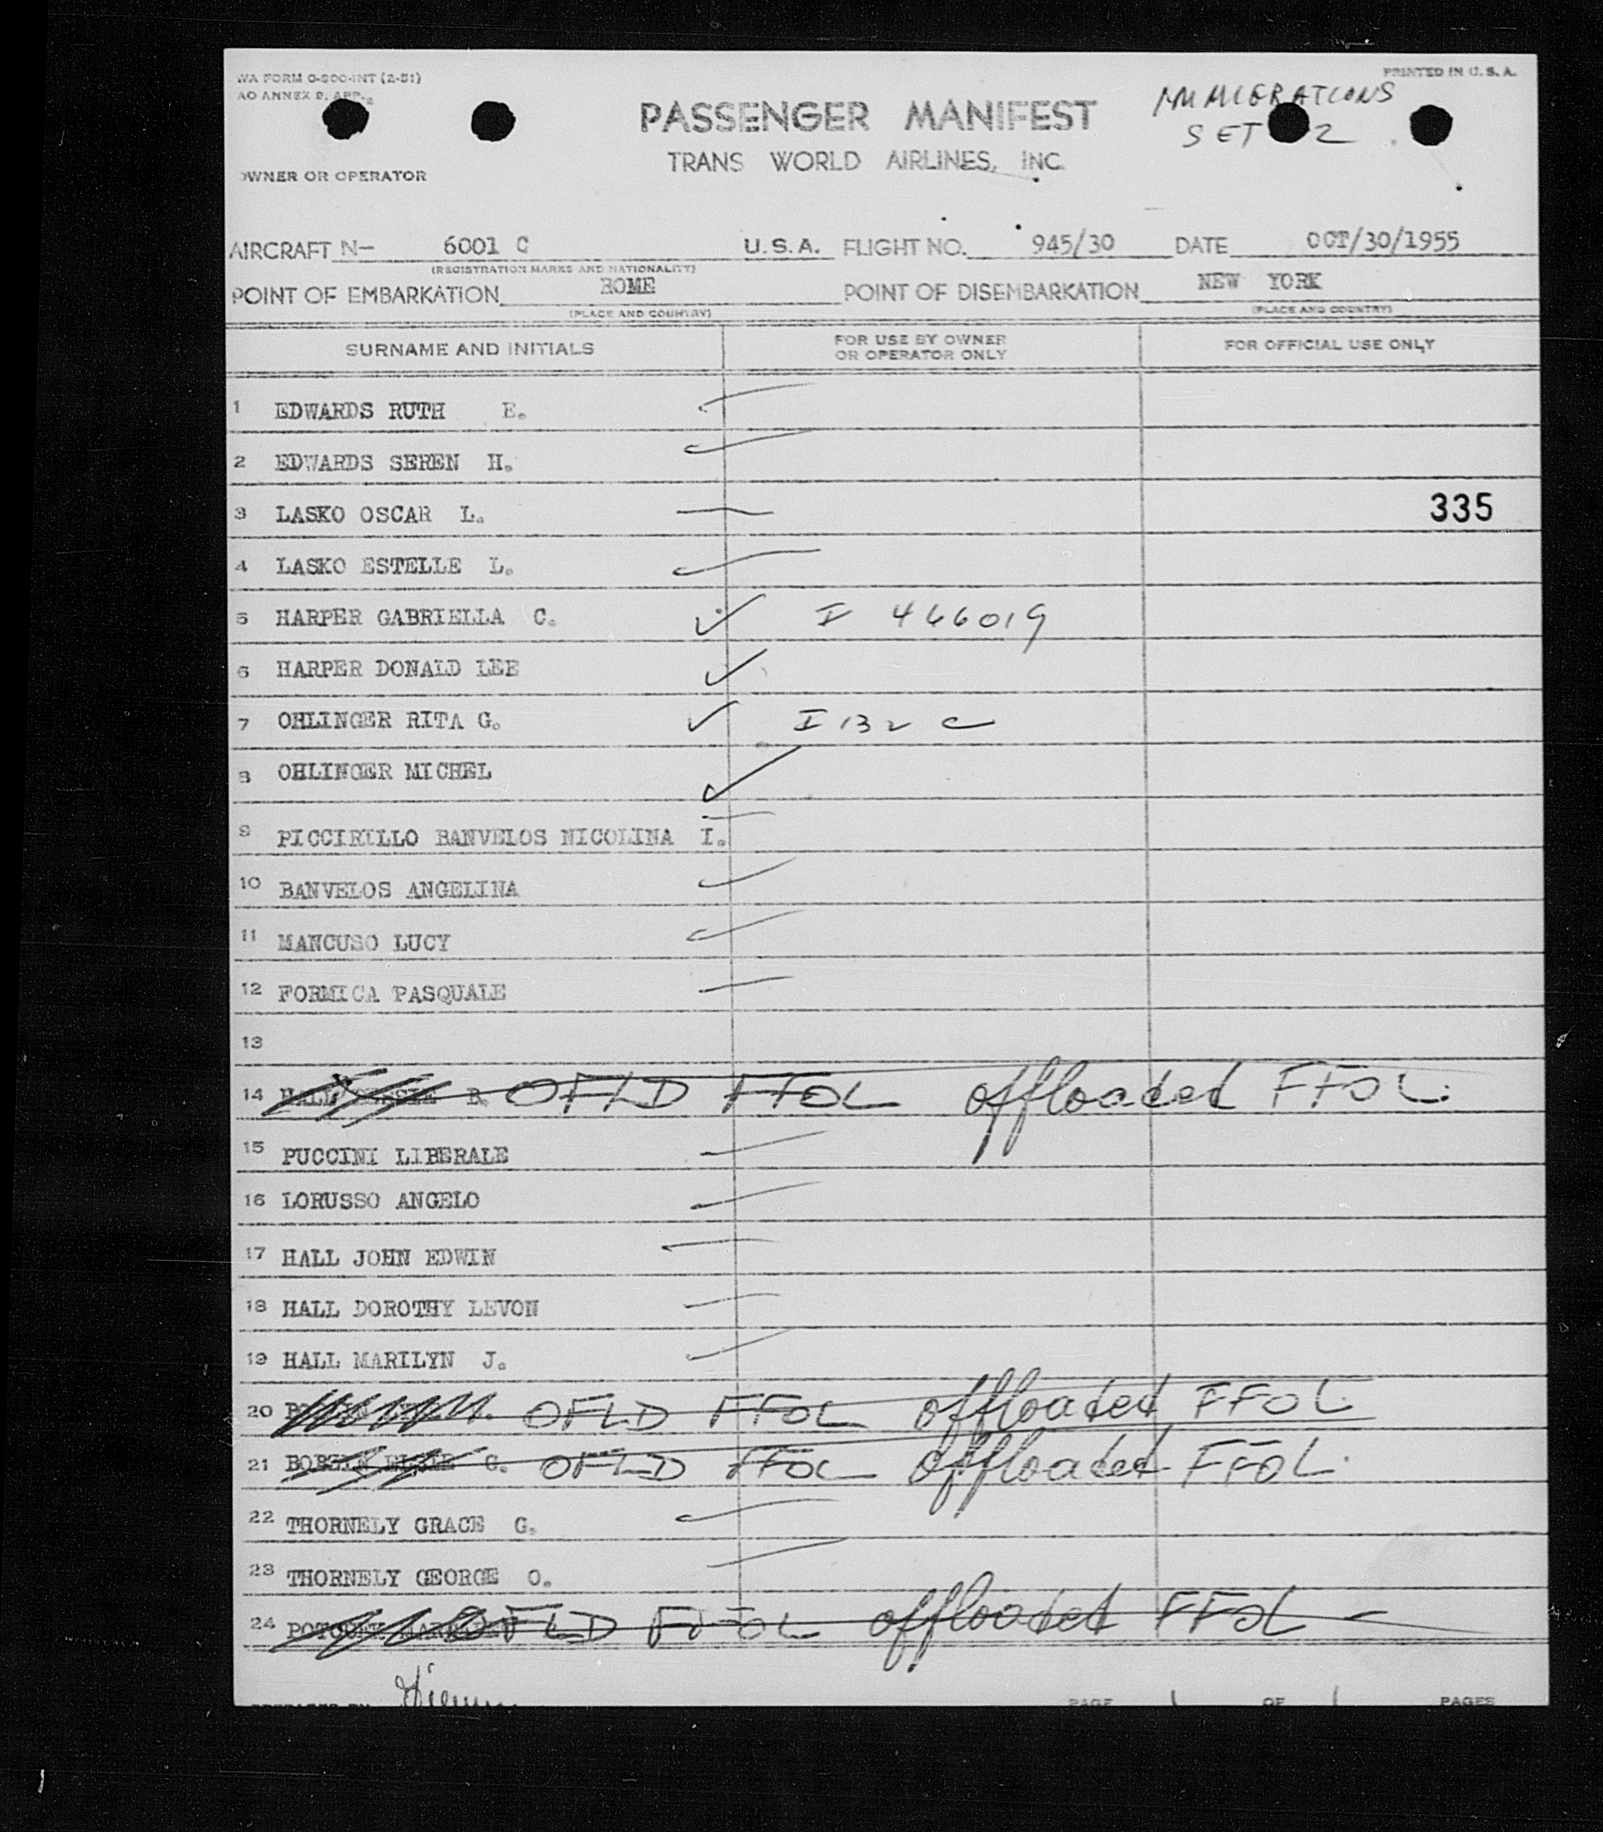 WA FORM O-500-INT (2-51)
PRINTED IN U. S. A.
AO ANNEX 9, APP.
IMMIGRATIONS
SET 2
PASSENGER MANIFEST
TRANS WORLD AIRLINES, INC.
OWNER OR OPERATOR
AIRCRAFT N- 6001 C U.S.A. FLIGHT NO. 945/30 DATE OCT/30/1955
(REGISTRATION MARKS AND NATIONALITY)
POINT OF EMBARKATION ROME POINT OF DISEMBARKATION NEW YORK
(PLACE AND COUNTRY) (PLACE AND COUNTRY)
SURNAME AND INITIALS FOR USE BY OWNER OR OPERATOR ONLY FOR OFFICIAL USE ONLY
1 EDWARDS RUTH E.
2 EDWARDS SEREN H.
3 LASKO OSCAR L. 335
4 LASKO ESTELLE L.
5 HARPER GABRIELLA C. I 466019
6 HARPER DONALD LEE
7 OHLINGER RITA G. I 132 C
8 OHLINGER MICHEL
9 PICCIRILLO BANVELOS NICOLINA I.
10 BANVELOS ANGELINA
11 MANCUSO LUCY
12 FORMICA PASQUALE
13
14 HALL R. OFLD FFOL offloaded FFOL.
15 PUCCINI LIBERALE
16 LORUSSO ANGELO
17 HALL JOHN EDWIN
18 HALL DOROTHY LEVON
19 HALL MARILYN J.
20 OFLD FFOL offloaded FFOL
21 G. OFLD FFOL offloaded FFOL.
22 THORNELY GRACE G.
23 THORNELY GEORGE O.
24 OFLD FFOL offloaded FFOL
PREPARED BY PAGE 1 OF 1 PAGES